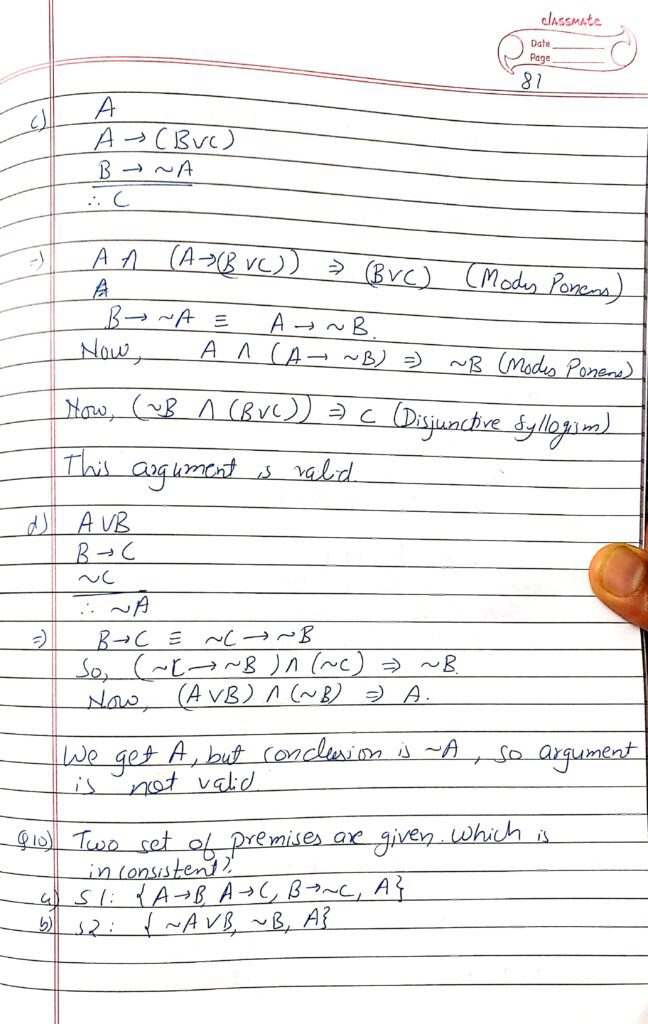 classmate
Date
Page
81
c) A
A → (B∨C)
B → ~A
∴ C
⇒ A ∧ (A→(B∨C)) ⇒ (B∨C) (Modus Ponens)
B → ~A ≡ A → ~B.
Now, A ∧ (A → ~B) ⇒ ~B (Modus Ponens)
Now, (~B ∧ (B∨C)) ⇒ C (Disjunctive Syllogism)
This argument is valid.
d) A∨B
B → C
~C
∴ ~A
⇒ B→C ≡ ~C → ~B
So, (~C → ~B) ∧ (~C) ⇒ ~B.
Now, (A∨B) ∧ (~B) ⇒ A.
We get A, but conclusion is ~A, so argument
is not valid
Q10) Two set of premises are given. Which is
inconsistent?
a) S1: {A→B, A→C, B→~C, A}
b) S2: {~A∨B, ~B, A}